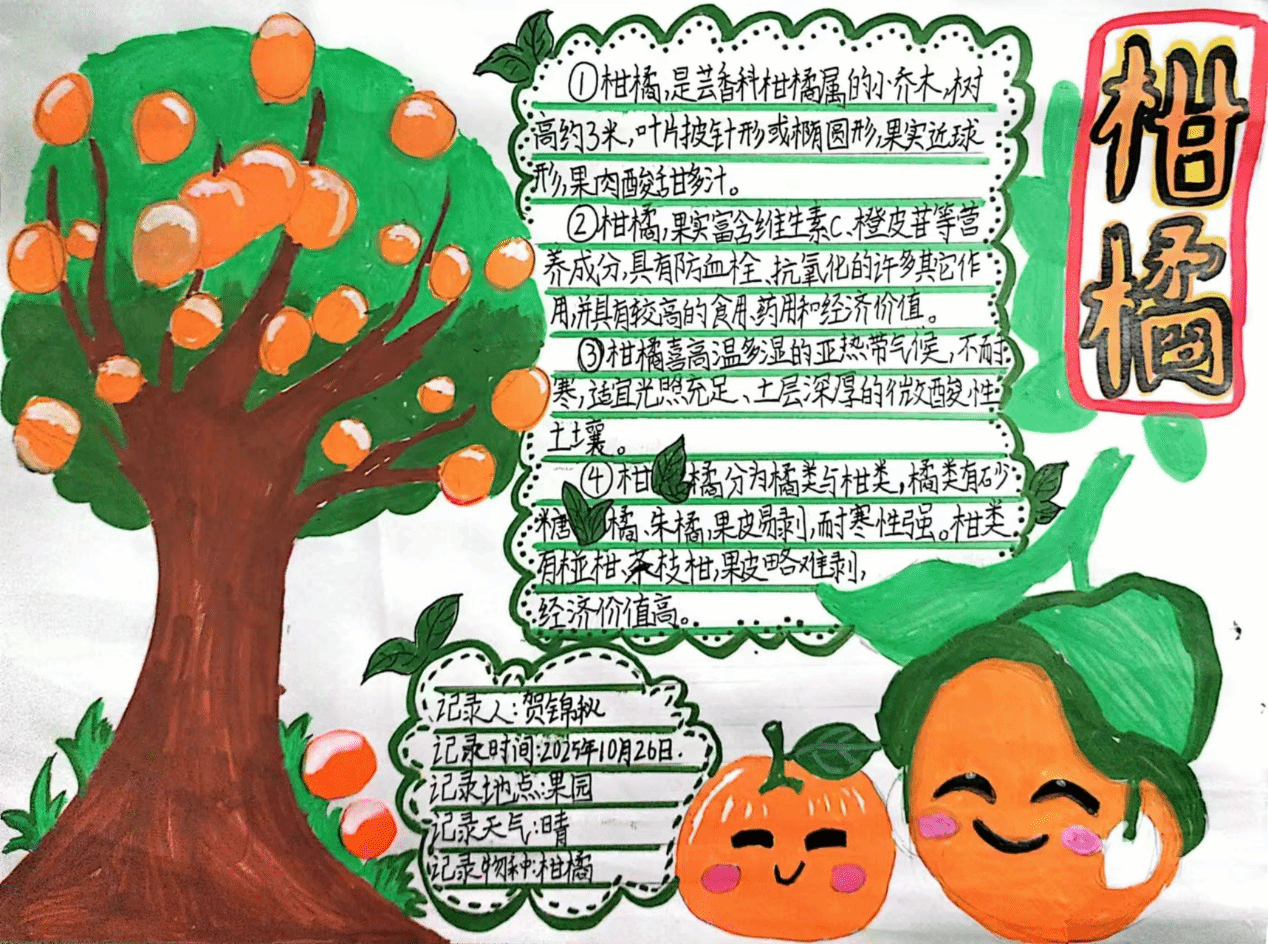 柑橘
①柑橘,是芸香科柑橘属的小乔木,树
高约3米,叶片披针形或椭圆形,果实近球
形,果肉酸甜多汁。
②柑橘,果实富含维生素C、橙皮苷等营
养成分,具有防血栓、抗氧化的许多其它作
用,并具有较高的食用、药用和经济价值。
③柑橘喜高温多湿的亚热带气候,不耐
寒,适宜光照充足、土层深厚的微酸性
土壤。
④柑橘分为橘类与柑类,橘类有砂
糖橘、朱橘,果皮易剥,耐寒性强。柑类
有椪柑、茶枝柑,果皮略难剥,
经济价值高。
记录人:贺锦
记录时间:2025年10月26日.
记录地点:果园
记录天气:晴
记录物种:柑橘